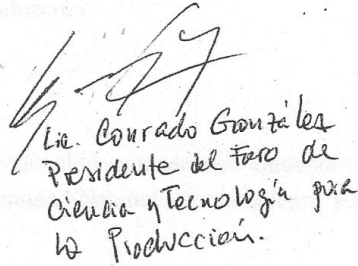 Lic. Conrado González
Presidente del Foro de
Ciencia y Tecnología para
la Producción.